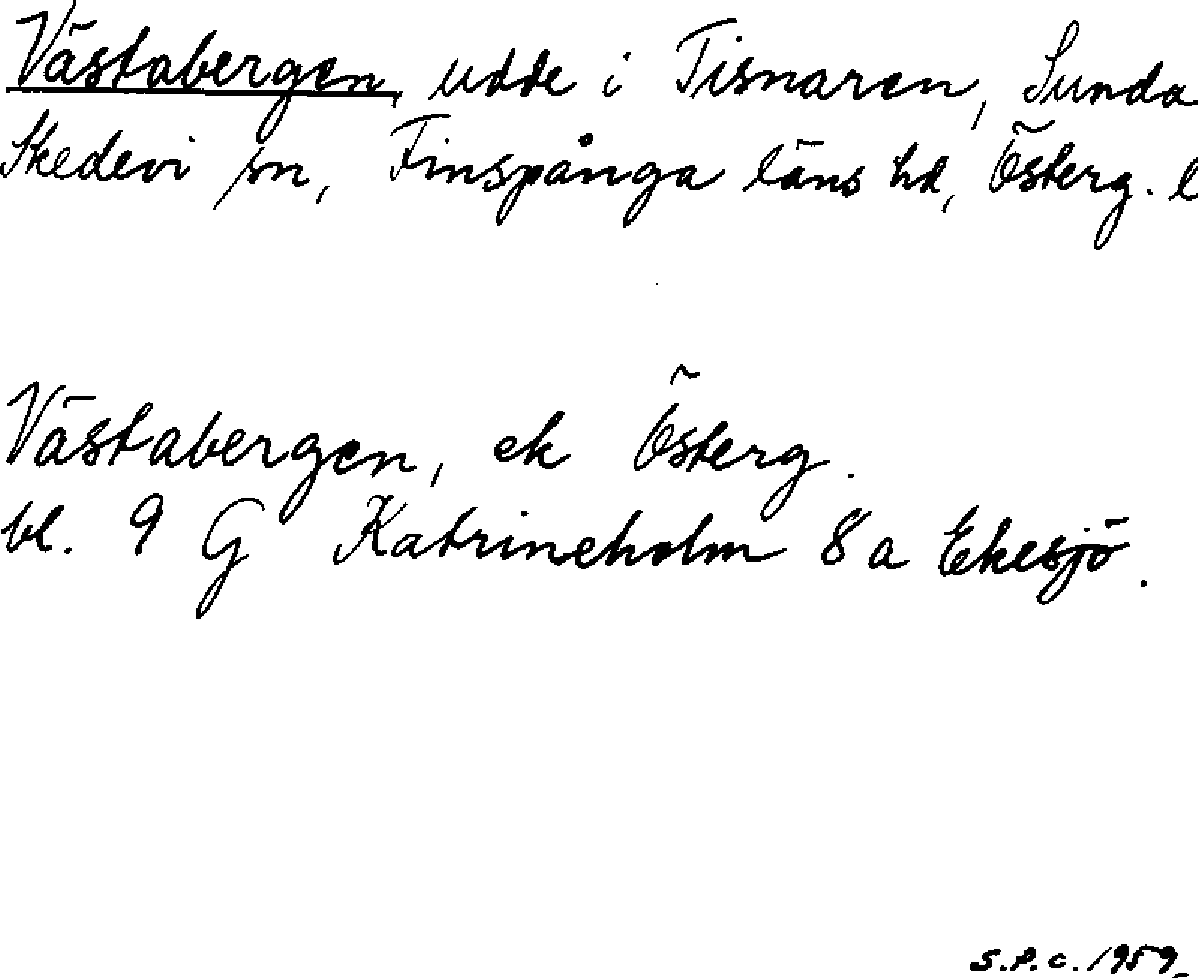 Västabergen, udde i Tisnaren, Sunda
Skedevi sn, Finspånga läns hd, Österg. l
Västabergen, ek Österg.
bl. 9 G Katrineholm 8a Ekesjö.
S.P.C. 1959